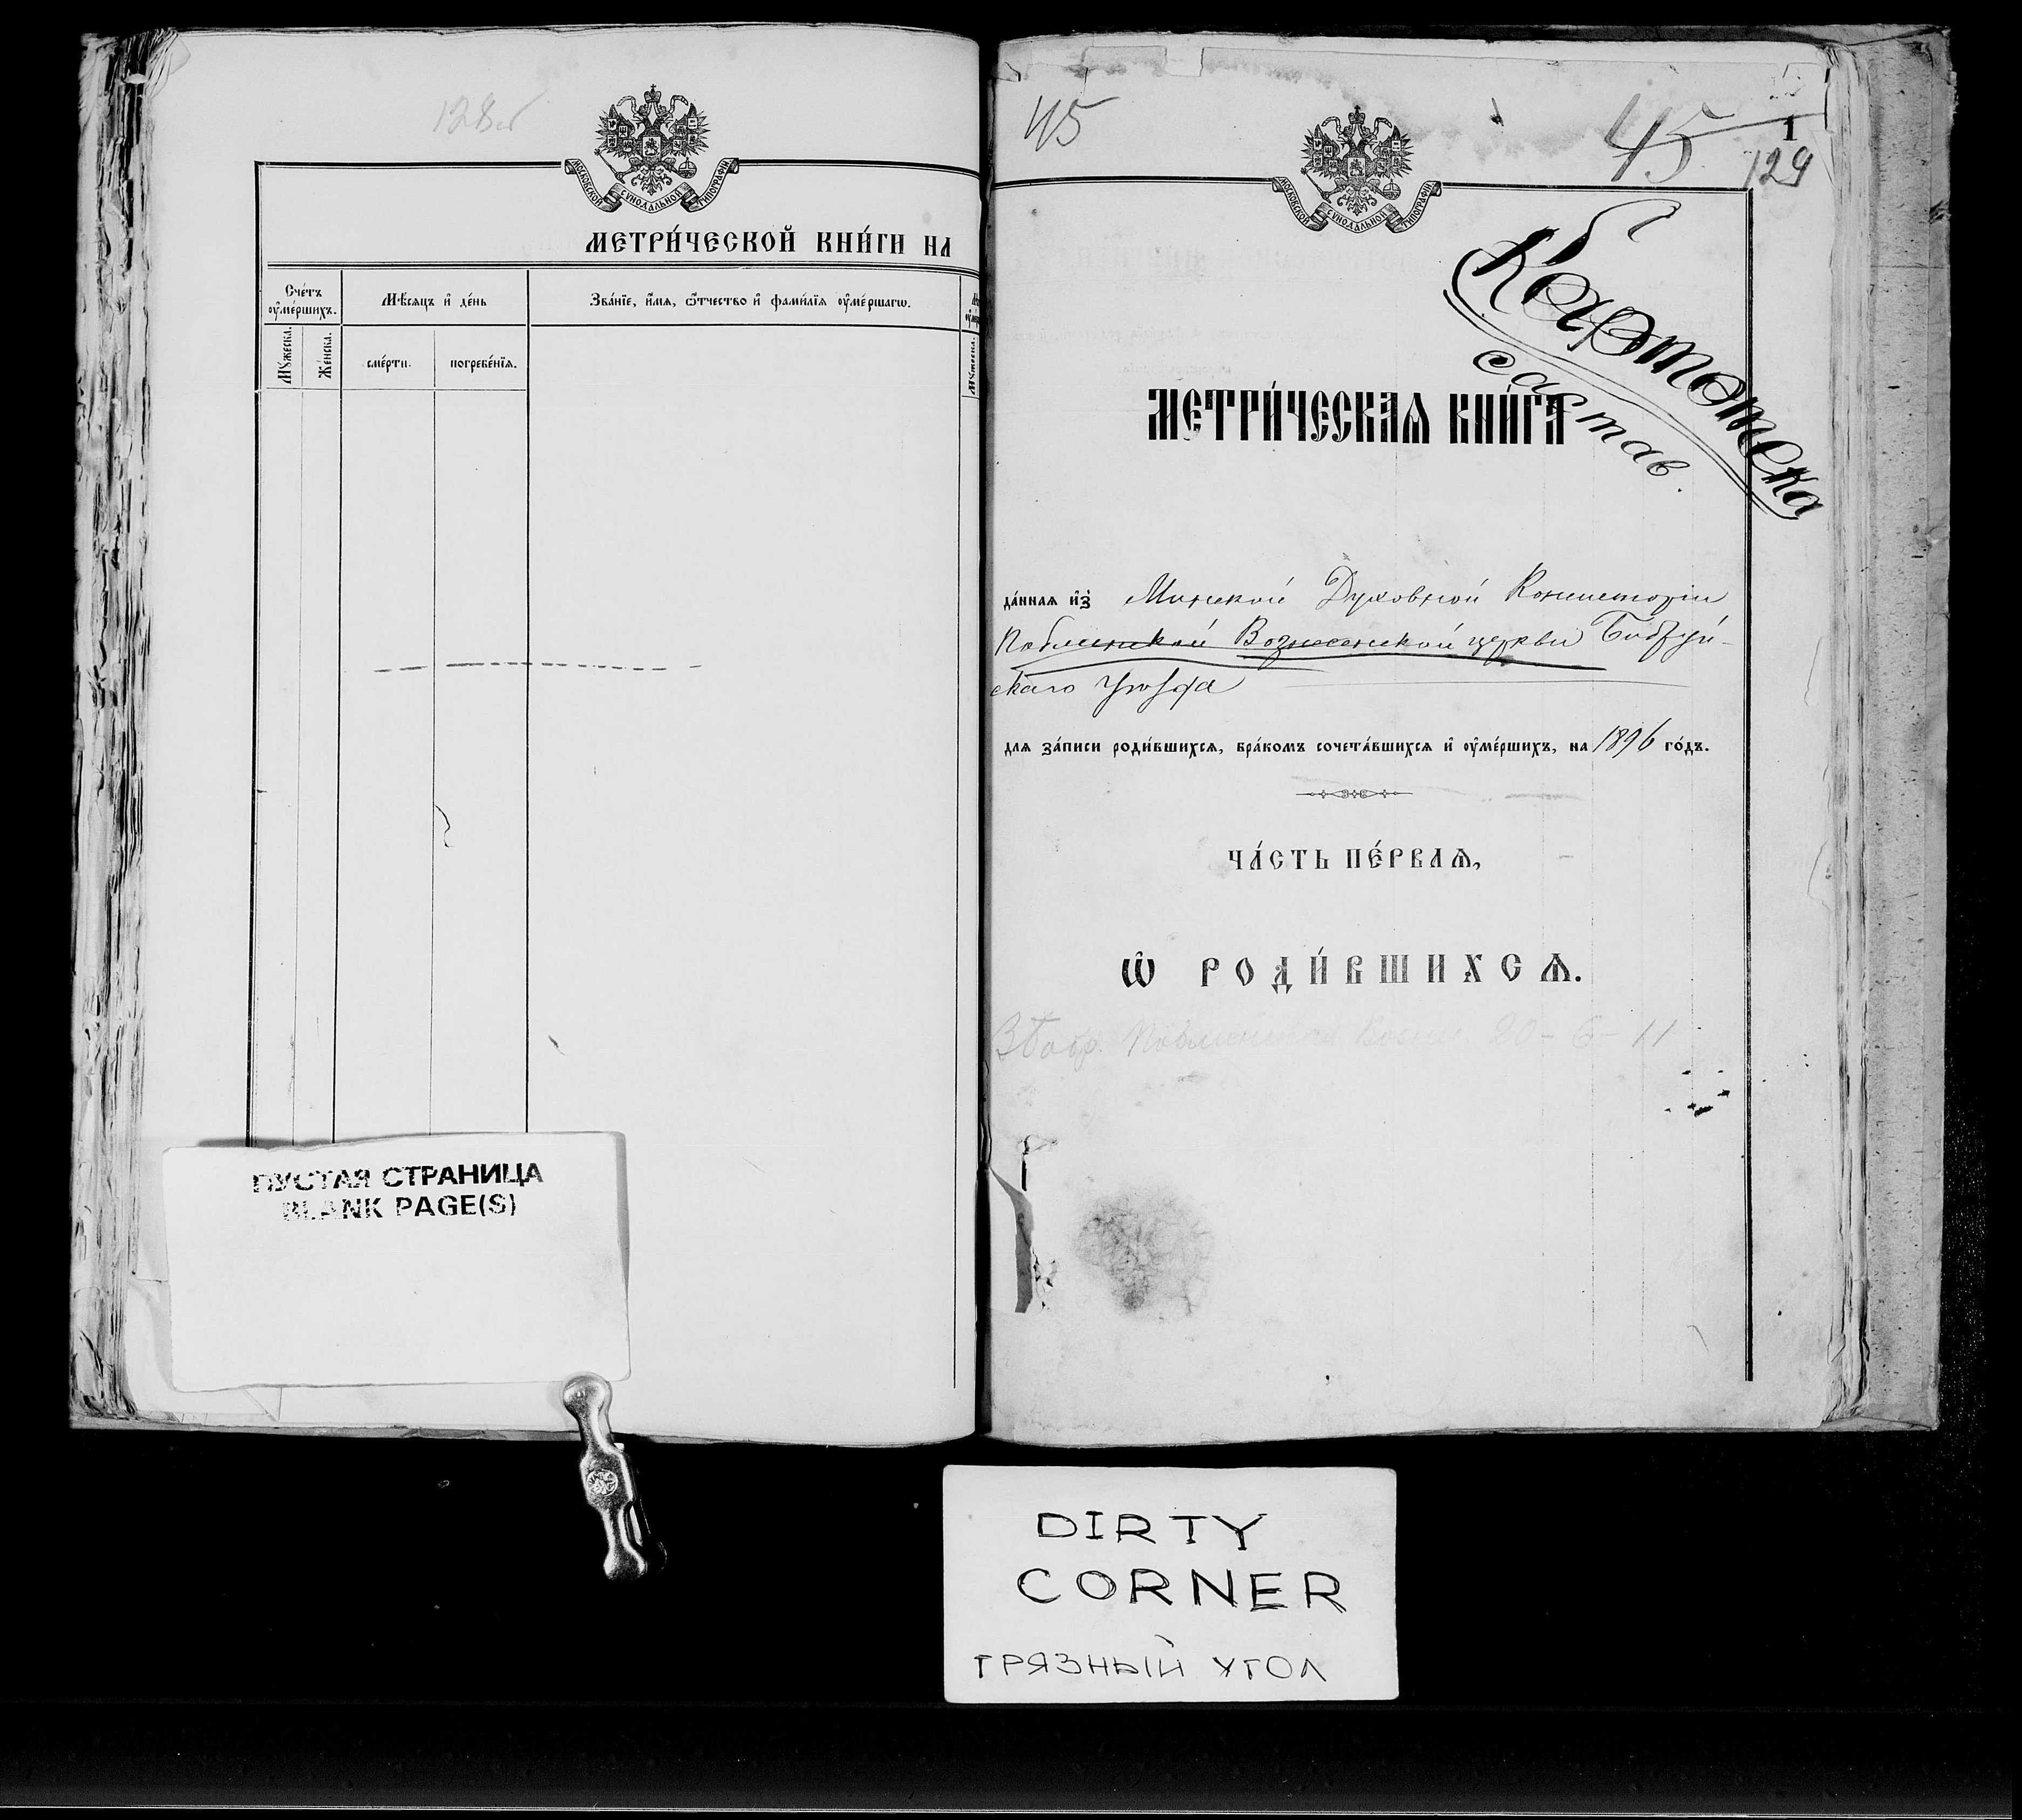 128об
МОСКОВСКОЙ СѴНОДАЛЬНОЙ ТИПОГРАФІИ
МЕТРИ́ЧЕСКОЙ КНИ́ГИ НА
Сче́тъ ᲂу҆ме́ршихъ.
Мѣ́сяцъ и҆ де́нь
Зва́нїе, и҆́мѧ, ѻ҆́тчество и҆ фами́лїѧ ᲂу҆ме́ршагѡ.
Мꙋ́жеска.
Же́нска.
сме́рти.
погребе́нїѧ.
Мꙋ́жеска.
ПУСТАЯ СТРАНИЦА
BLANK PAGE(S)
45
45
1
129
МОСКОВСКОЙ СѴНОДАЛЬНОЙ ТИПОГРАФІИ
Картотека
состав.
МЕТРИ́ЧЕСКАѦ КНИ́ГА
да́ннаѧ и҆з̾ Минской Духовной Консисторіи
Вознесенской церкви Бобруй-
скаго уѣзда
длѧ за́писи роди́вшихсѧ, бра́комъ сочета́вшихсѧ и҆ ᲂу҆ме́ршихъ, на 1896 го́дъ.
ЧА́СТЬ ПЕ́РВАѦ,
Ѽ РОДИ́ВШИХСѦ.
20-6-11
DIRTY
CORNER
ГРЯЗНЫЙ УГОЛ